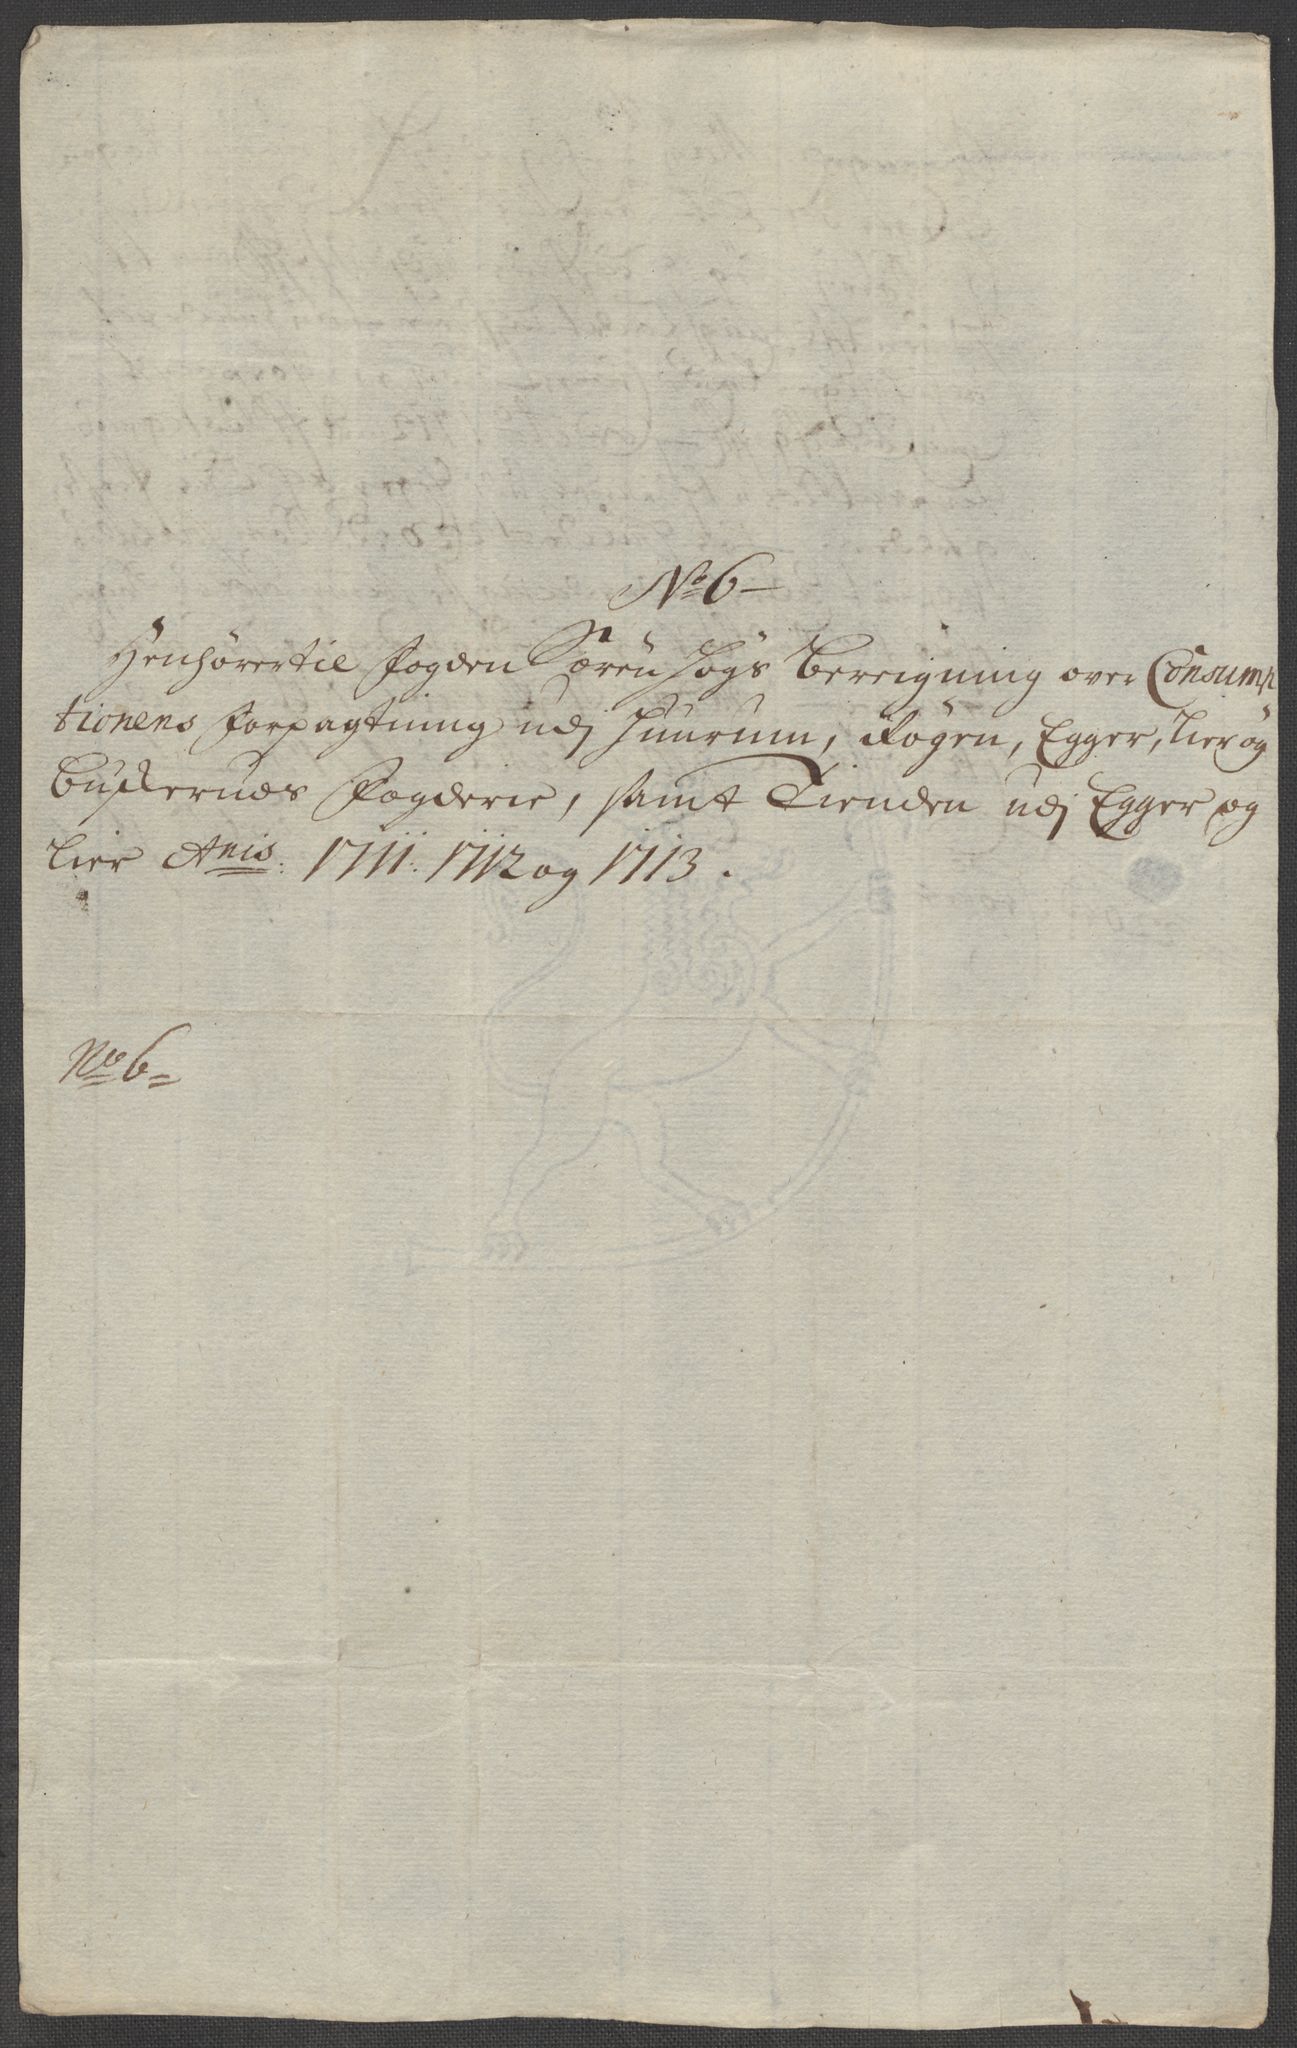 No 6
Henhörer til Fogden Sören Høgs bereigning over Consump
tionens Forpagtning udj Huurum, Rögen, Egger, Lier og
Buskeruds Fogderie, samt Tienden udj Egger og
Lier Anis: 1711: 1712 og 1713.
No 6